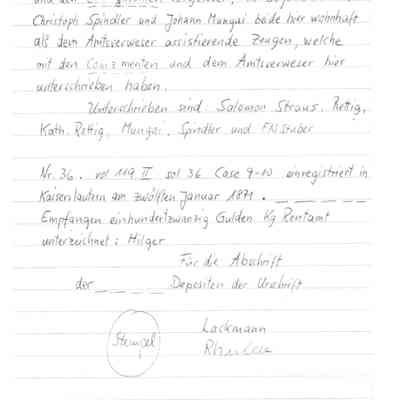 und den
Christoph Spindler und Johann Mungai beide hier wohnhaft
als dem Amtsverweser assistierende Zeugen, welche
mit den Comzmenten und dem Amtsverweser hier
unterschrieben haben.
Unterschrieben sind. Salomon Straus, Rettig,
Kath. Rettig, Mungai, Spindler und FN Stuber
Nr. 36. vol 119 II sol 36 Case 9-10 einregistriert in
Kaiserlautern am zwölften Januar 1871. _ _ _ _ _
Empfangen einhundertzwanzig Gulden Kg Rentamt
unterzeichnet: Hilger
Für die Abschrift
der _ _ _ _ Depositen der Urschrift
Stempel
Lackmann